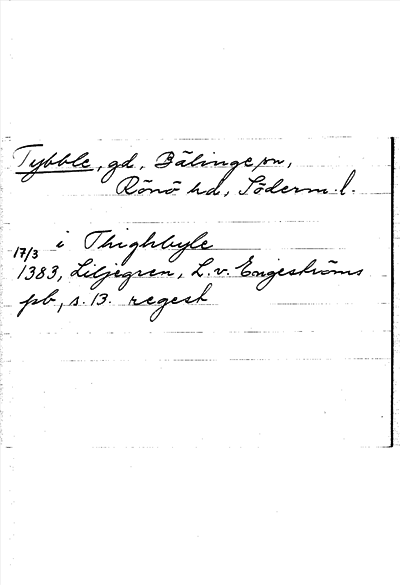 Tybble, gd, Bälinge sn,
Rönö hd, Söderm. l.
i Thighbyle
17/3
1383, Liljegren, L. v. Engeströms
pb, s. 13. regest